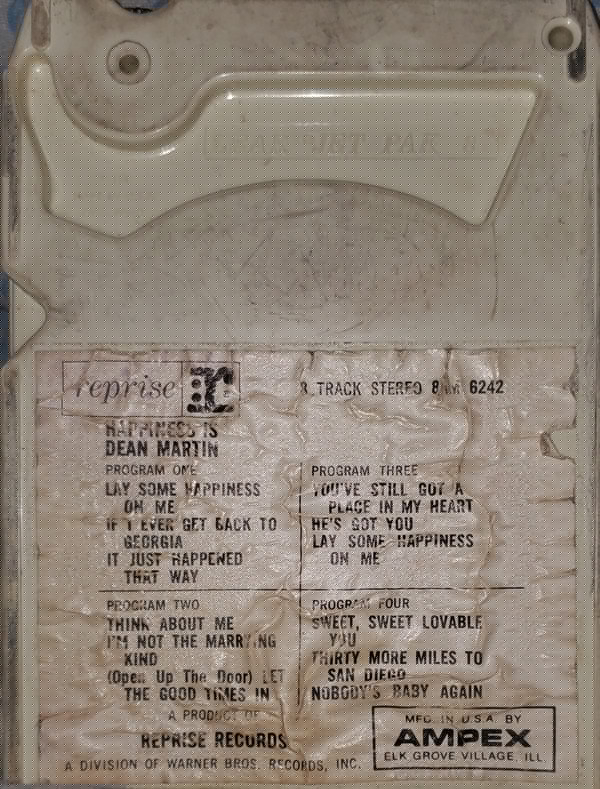 LEAR JET PAK 8
reprise
8 TRACK STEREO 8 M 6242
HAPPINESS IS
DEAN MARTIN
PROGRAM ONE
LAY SOME HAPPINESS
ON ME
IF I EVER GET BACK TO
GEORGIA
IT JUST HAPPENED
THAT WAY
PROGRAM THREE
YOU'VE STILL GOT A
PLACE IN MY HEART
HE'S GOT YOU
LAY SOME HAPPINESS
ON ME
PROGRAM TWO
THINK ABOUT ME
I'M NOT THE MARRYING
KIND
(Open Up The Door) LET
THE GOOD TIMES IN
PROGRAM FOUR
SWEET, SWEET LOVABLE
YOU
THIRTY MORE MILES TO
SAN DIEGO
NOBODY'S BABY AGAIN
A PRODUCT OF
REPRISE RECORDS
A DIVISION OF WARNER BROS. RECORDS, INC.
MFG. IN U.S.A. BY
AMPEX
ELK GROVE VILLAGE, ILL.